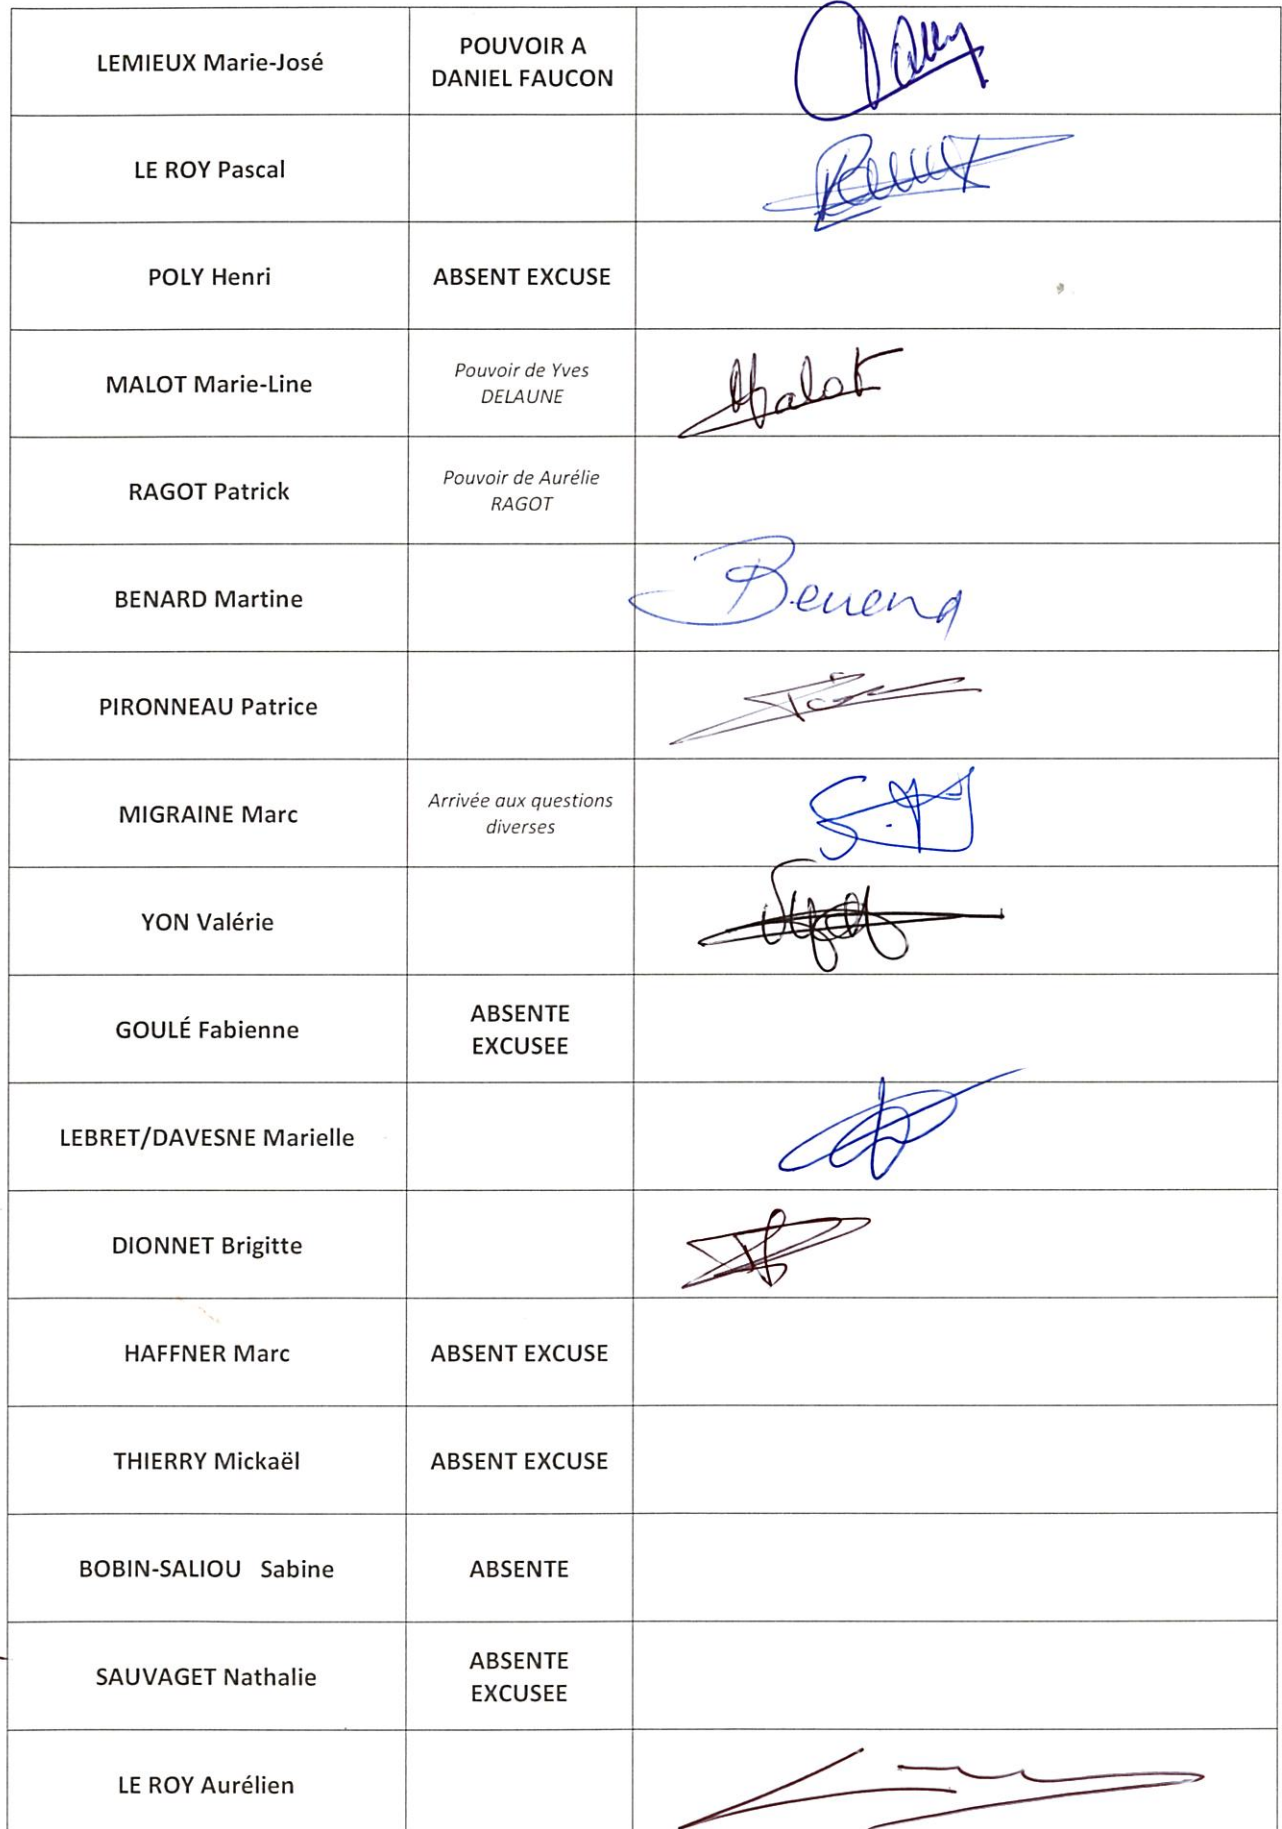 LEMIEUX Marie-José
POUVOIR A
DANIEL FAUCON
LE ROY Pascal
POLY Henri
ABSENT EXCUSE
MALOT Marie-Line
Pouvoir de Yves
DELAUNE
Malot
RAGOT Patrick
Pouvoir de Aurélie
RAGOT
BENARD Martine
PIRONNEAU Patrice
MIGRAINE Marc
Arrivée aux questions
diverses
YON Valérie
GOULÉ Fabienne
ABSENTE
EXCUSEE
LEBRET/DAVESNE Marielle
DIONNET Brigitte
HAFFNER Marc
ABSENT EXCUSE
THIERRY Mickaël
ABSENT EXCUSE
BOBIN-SALIOU Sabine
ABSENTE
SAUVAGET Nathalie
ABSENTE
EXCUSEE
LE ROY Aurélien